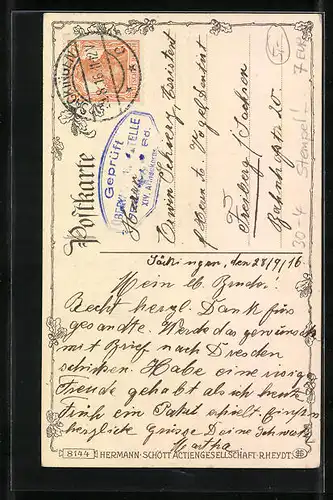 Postkarte
Geprüft
Bd.
Erwin
Freiberg / Sachsen
Bahnhofstr. 10
5,-
7 EUR
30-4 Stempel!
Säckingen, den 28/9/16
Mein lb. Bruder!
Recht herzl. Dank fürs
gesandte. Werde das gewünschte
mit Brief nach Dresden
schicken. Habe eine riesige
Freude gehabt als ich heute
früh ein Paket erhielt.
herzliche Grüsse Deine Schwester
Martha
8144 HERMANN SCHÖTT ACTIENGESELLSCHAFT RHEYDT.